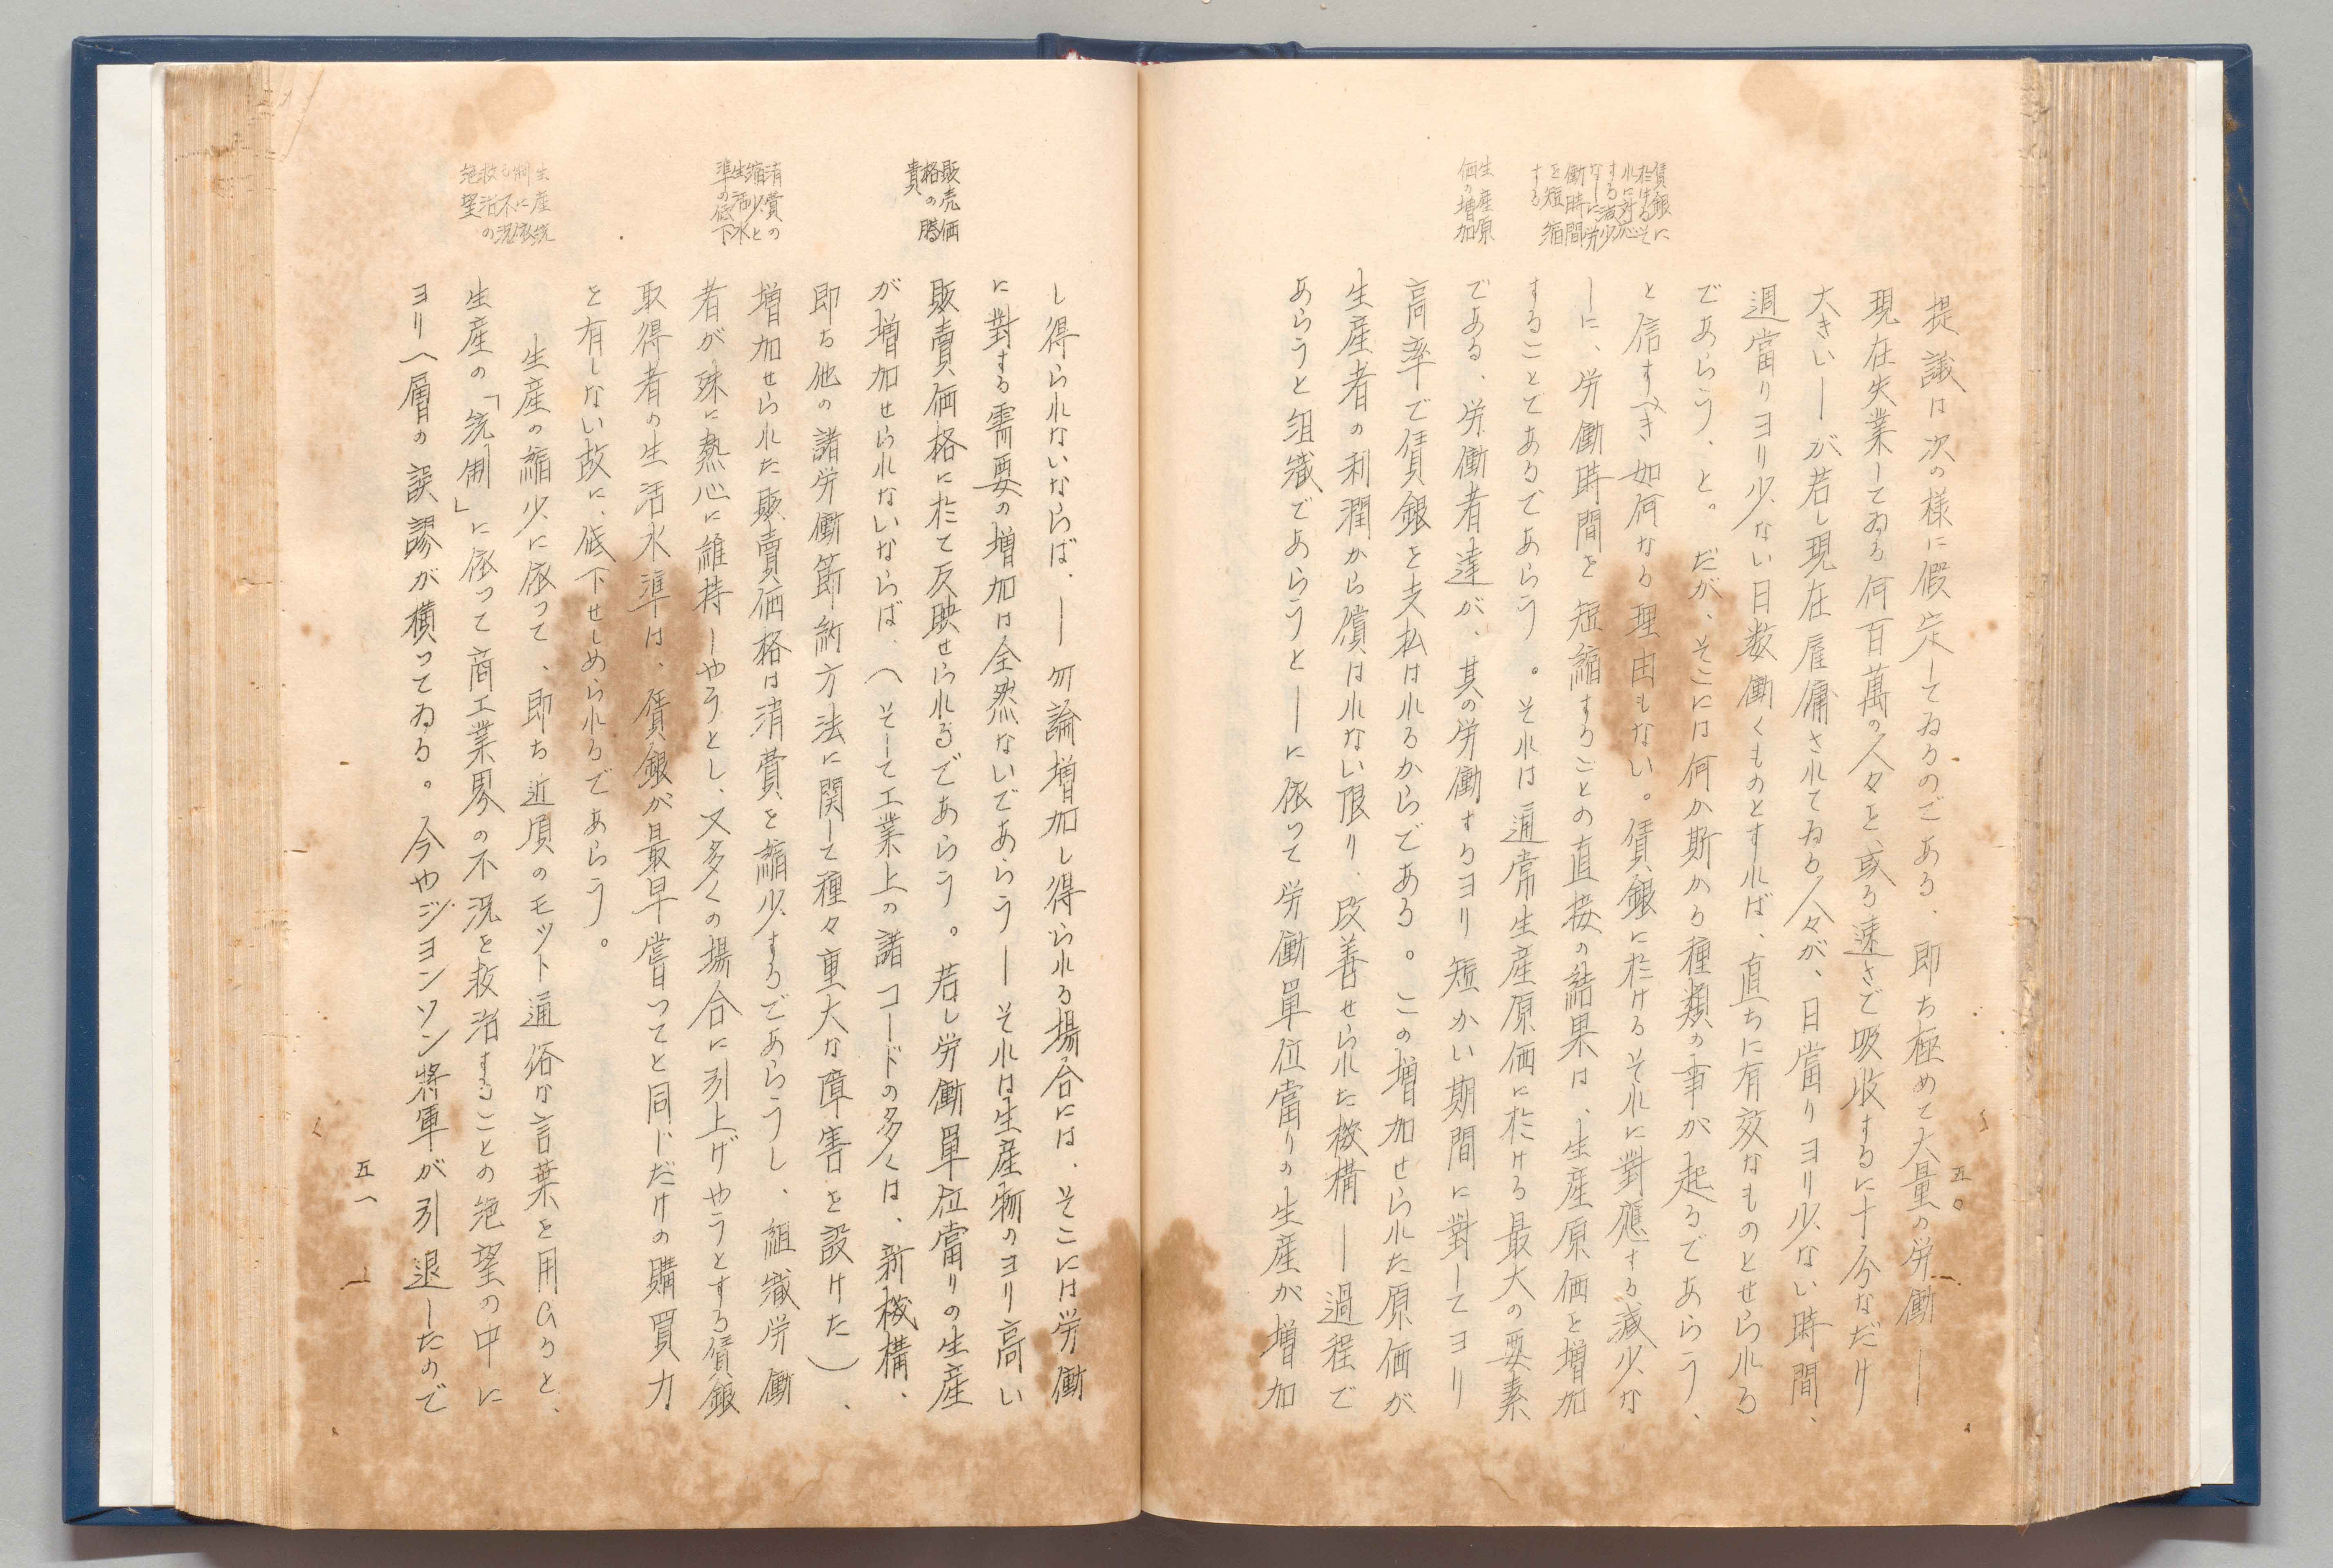 賃銀に
於けるそ
れに対応
する減少
なしに労
働時間
を短縮
する
生産原
価の増加
提議は次の様に假定してゐるのである、即ち極めて大量の労働―
現在失業してゐる何百萬の人々を、或る速さで吸收するに十分なだけ
大きい―が若し現在雇傭されてゐる人々が、日當りヨリ少ない時間、
週當りヨリ少ない日数働くものとすれば、直ちに有效なものとせられる
であらう、と。だが、そこには何か斯かる種類の事が起るであらう、
と信すべき如何なる理由もない。賃銀に於けるそれに對應する減少な
しに、労働時間を短縮することの直接の結果は、生産原価を増加
することであるであらう。それは通常生産原価に於ける最大の要素
である、労働者達が、其の労働するヨリ短かい期間に對してヨリ
高率で賃銀を支払はれるからである。この増加せられた原価が
生産者の利潤から償はれない限り、改善せられた機構―過程で
あらうと組織であらうと―に依って労働單位當りの生産が増加
五〇
販売価
格の騰
貴
消費の
縮少と
生活水
準の低下
生産統
制に依
る不況
救治の
絶望
し得られないならば、―勿論増加し得られる場合には、そこには労働
に對する需要の増加は全然ないであらう―それは生産物のヨリ高い
販賣価格に於て反映せられるであらう。若し労働單位當りの生産
が増加せられないならば、（そして工業上の諸コードの多くは、新機構、
即ち他の諸労働節約方法に関して種々重大な障害を設けた）、
増加せられた販賣価格は消費を縮少するであらうし、組織労働
者が殊に熱心に維持しやうとし、又多くの場合に引上げやうとする賃銀
取得者の生活水準は、賃銀が最早嘗つてと同じだけの購買力
を有しない故に、低下せしめられるであらう。
生産の縮少に依って、即ち近頃のモット通俗な言葉を用ひると、
生産の「統制」に依って商工業界の不況を救治することの絶望の中に
ヨリ一層の誤謬が横ってゐる。今やジヨンソン将軍が引退したので
五一